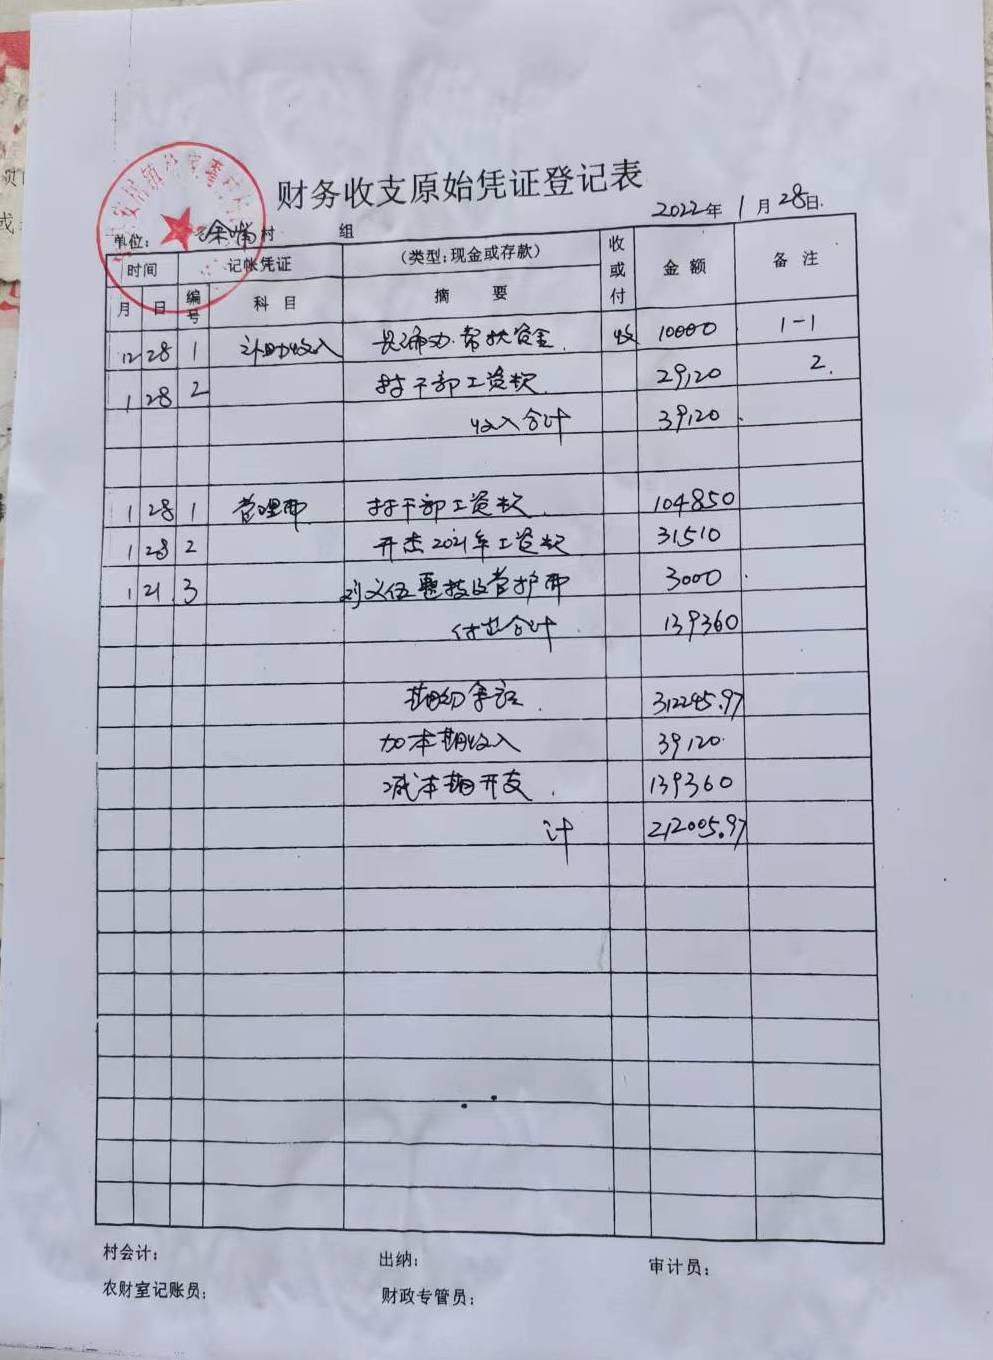 财务收支原始凭证登记表
2022年 1月28日
单位: 余嘴村 组
时间 记帐凭证 (类型:现金或存款) 收或付 金额 备注
月 日 编号 科目 摘要
12 28 1 补助收入 帮扶资金 收 10000 1-1
1 28 2 村干部工资款 29120 2.
收入合计 39120
1 28 1 管理费 村干部工资款 104850
1 28 2 2021年工资款 31510
1 21 3 管护费 3000
付出合计 139360
期初余额 312245.97
加本期收入 39120
减本期开支 139360
计 212005.97
村会计: 出纳: 审计员:
农财室记账员: 财政专管员: